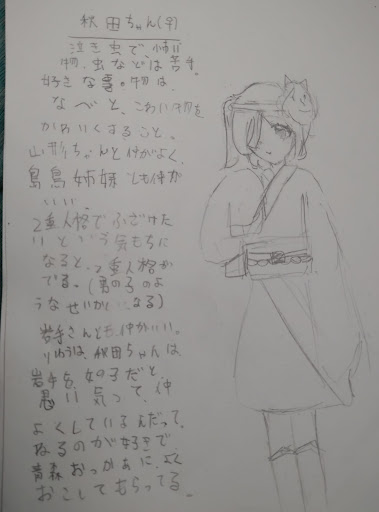 秋田ちゃん(字)
泣き虫で、怖い
物、虫などは苦手。
好きな事。物は、
なべと、こわい物を
かわいくすること。
山形ちゃんと仲がよく、
島島姉妹とも仲が
いい。
2重人格でふざけた
りという気もちに
なると、2重人格が
でる。(男の子のよ
うなせいかくになる)
岩手さんとも仲がいい。
りゆうは、秋田ちゃんは、
岩手を女の子だと、
思い気って、仲
よくしているんだって。
ねるのが好きで
青森おっかあに、よく
おこしてもらってる。